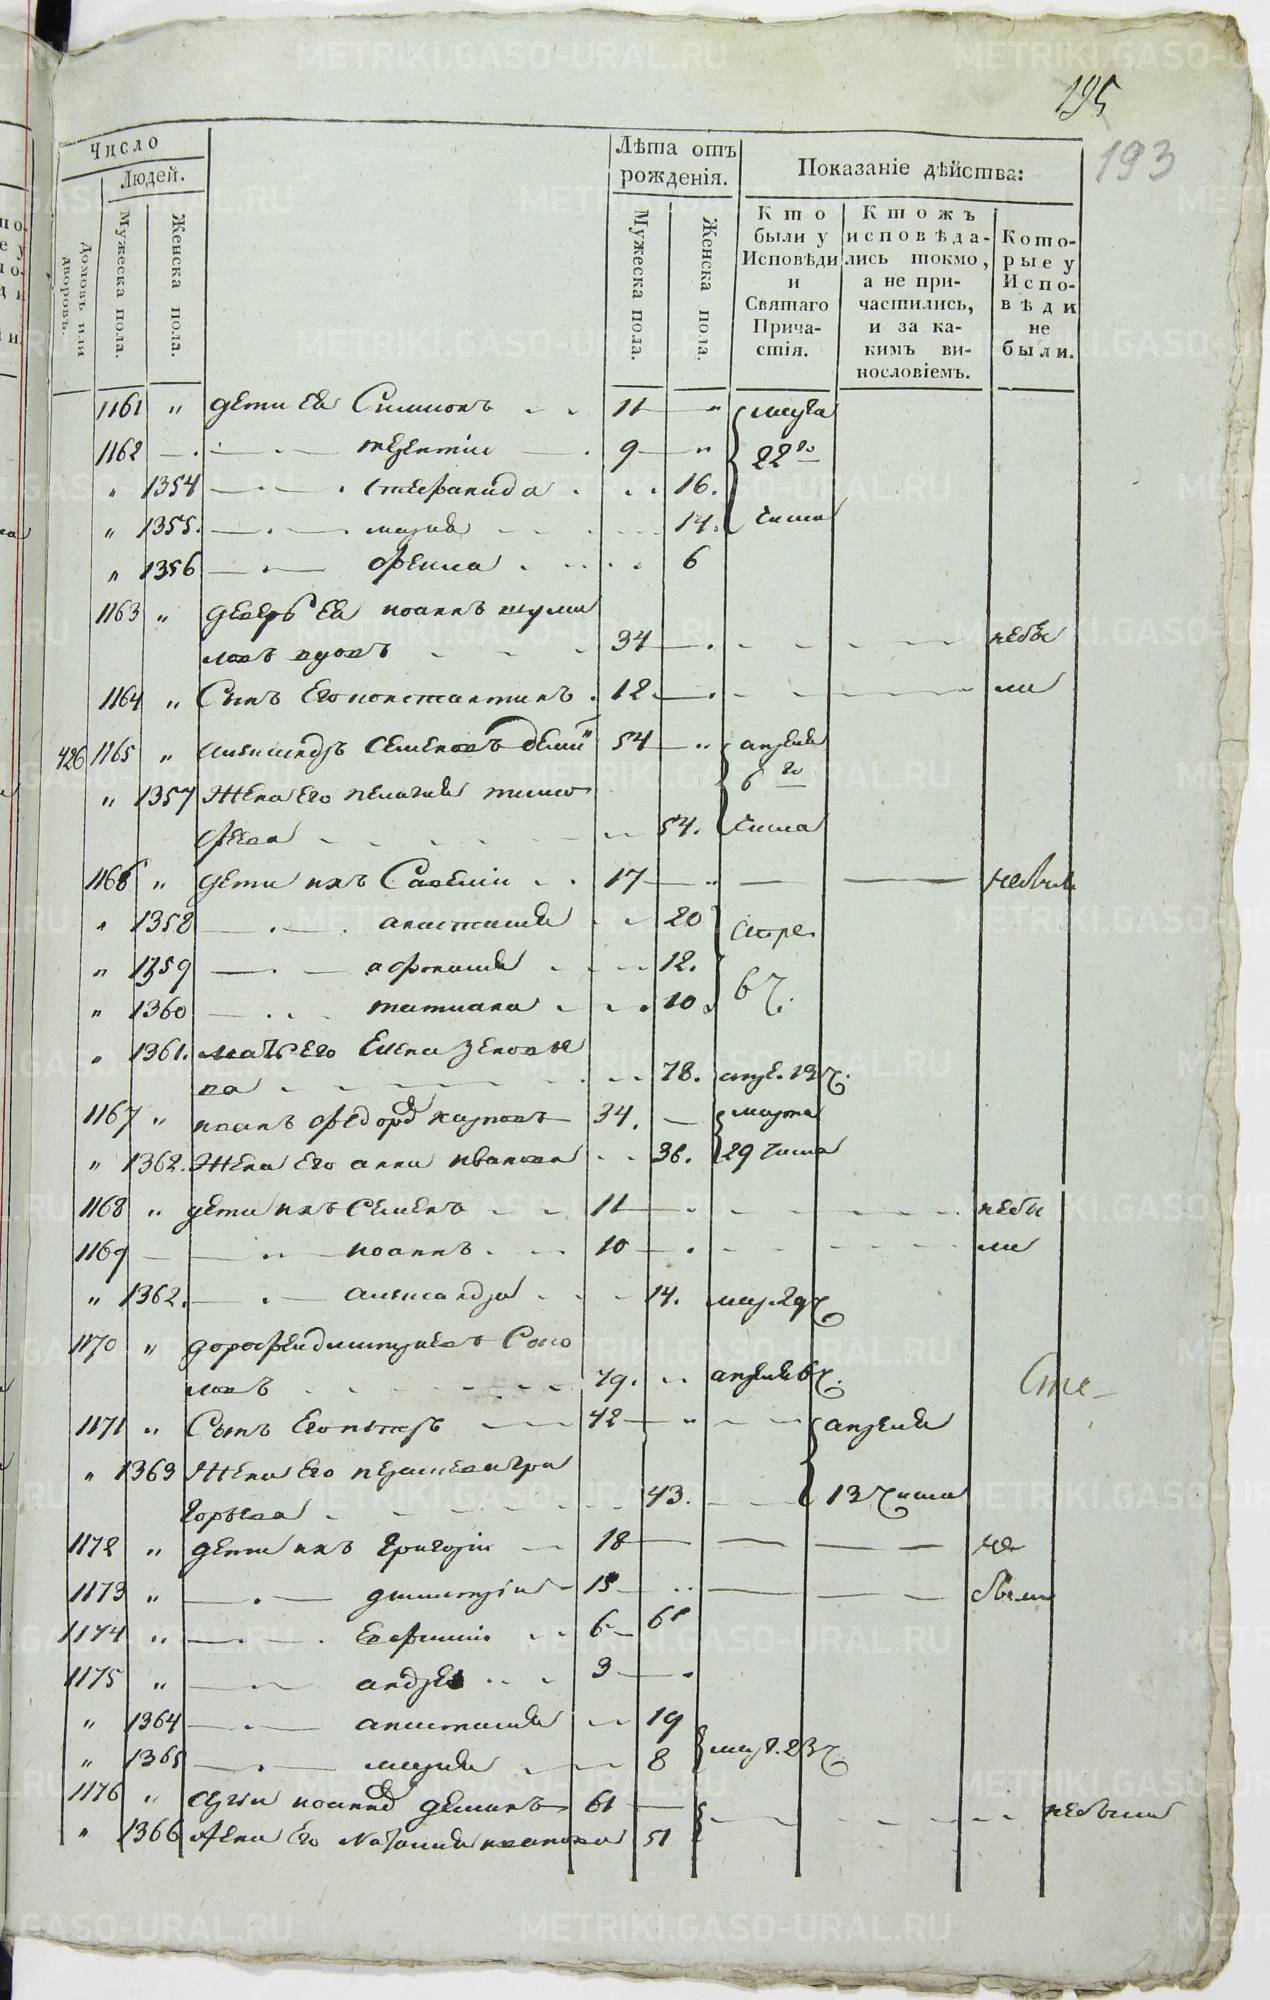 195
193
Число
Людей.
Домовъ или дворовъ.
Мужеска пола.
Женска пола.
Лѣта отъ рожденія.
Мужеска пола.
Женска пола.
Показаніе дѣйства:
Кто были у Исповѣди и Святаго Причастія.
Ктожъ исповѣдались токмо, а не причастились, и за какимъ винословіемъ.
Которые у Исповѣди не были.
1161 " дети Ея Симионъ 11 " марта
1162 9 " 22го
" 1354 Стефанида 16.
" 1355. мария 14. числа
" 1356 Фекла 6
1163 " деверь Ея иоаннъ
34 небы
1164 " Сынъ Его константинъ. 12 ли
426 1165 " александръ Семеновъ 54 " апреля
6го
" 1357 Жена Его пелагия тимо
феева 54. числа
1166 " дети ихъ Савелий 17 " небыл
" 1358 анастасия 20
" 1359 афонасия 12.
" 1360 татиана 10 6 ч.
" 1361. мать Его Елена
на 78. апре. 13 ч.
1167 " иванъ федоров 34. марта
" 1362. Жена Его анна иванова 36. 29 числа
1168 " дети ихъ Семенъ 11 небы
1169 иоаннъ 10 ли
" 1362. александра 14. мар. 29 ч
1170 " дорофеи димитриевъ Соко
ловъ 79. " апреля 6 ч.
Сте-
1171 " Сынъ Его петръ 42 " апреля
" 1363 Жена Его парасковья гри
горьева 43. 13 числа
1172 " дети ихъ григорий 18 не
1173 " димитрий 15 были
1174 " Евфимий 6 6
1175 " андрей 3
" 1364 анастасия 19
" 1365 мария 8 мар. 23 ч.
1176 " иоаннов деминъ 61 небыли
" 1366 Жена Его Наталия иванова 51
METRIKI.GASO-URAL.RU